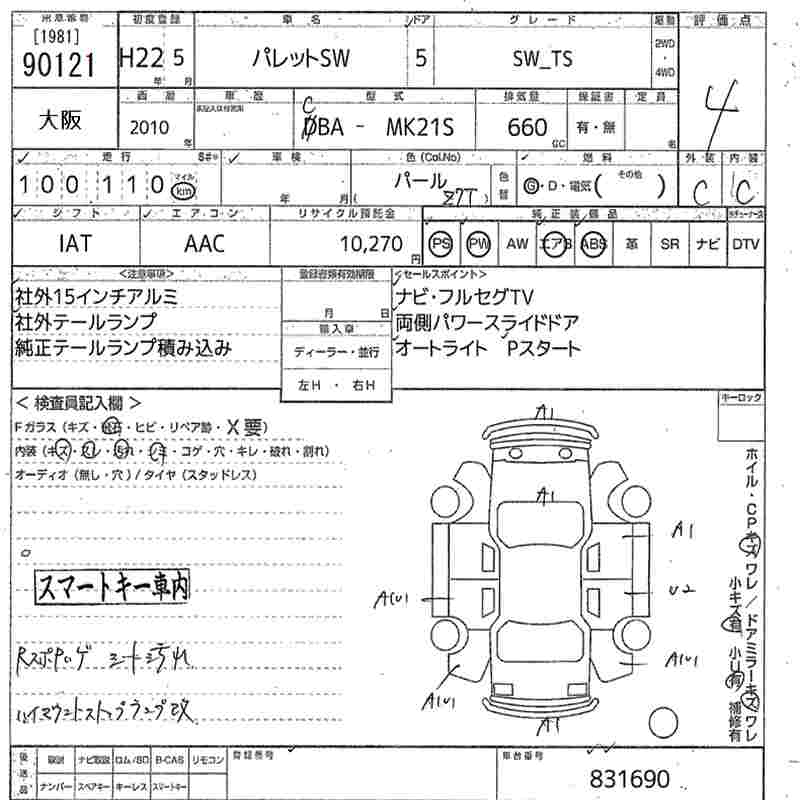 出品番号 初度登録 車名 ドア グレード 駆動 評価点
[1981]
90121 H22 5 パレットSW 5 SW_TS 2WD・4WD 4
年 月
大阪 西暦 車歴 型式 排気量 保証書 定員
2010 年 C DBA - MK21S 660 CC 有・無 名
走行 S# 車検 色(Col.No) 色替 燃料 外装 内装
100110 マイル km 年 月 パール Z7T G・D・電気( その他 ) C C
シフト エアコン リサイクル預託金 純正装備品
IAT AAC 10,270円 PS PW AW エアB ABS 革 SR ナビ DTV
＜注意事項＞ 登録書類有効期限 ＜セールスポイント＞
社外15インチアルミ 月 日 ナビ・フルセグTV
社外テールランプ 輸入車 両側パワースライドドア
純正テールランプ積み込み ディーラー・並行 オートライト Pスタート
左H・右H
＜検査員記入欄＞ キーロック
Fガラス(キズ・飛石・ヒビ・リペア跡・X要)
内装(キズ・スレ・汚れ・シミ・コゲ・穴・キレ・破れ・割れ)
オーディオ(無し・穴)/タイヤ(スタッドレス)
A1
A1
A1
U2
AlUl
AlUl
AlUl
A1
ホイル・CPキズワレ/ドアミラーキズワレ
小キズ有 小U有 補修有
スマートキー車内
シート汚れ
ハイマウントストップランプ改
後送品 取説 ナビ取説 ロム/SD B-CAS リモコン 登録番号 車台番号
ナンバー スペアキー キーレス スマートキー 831690